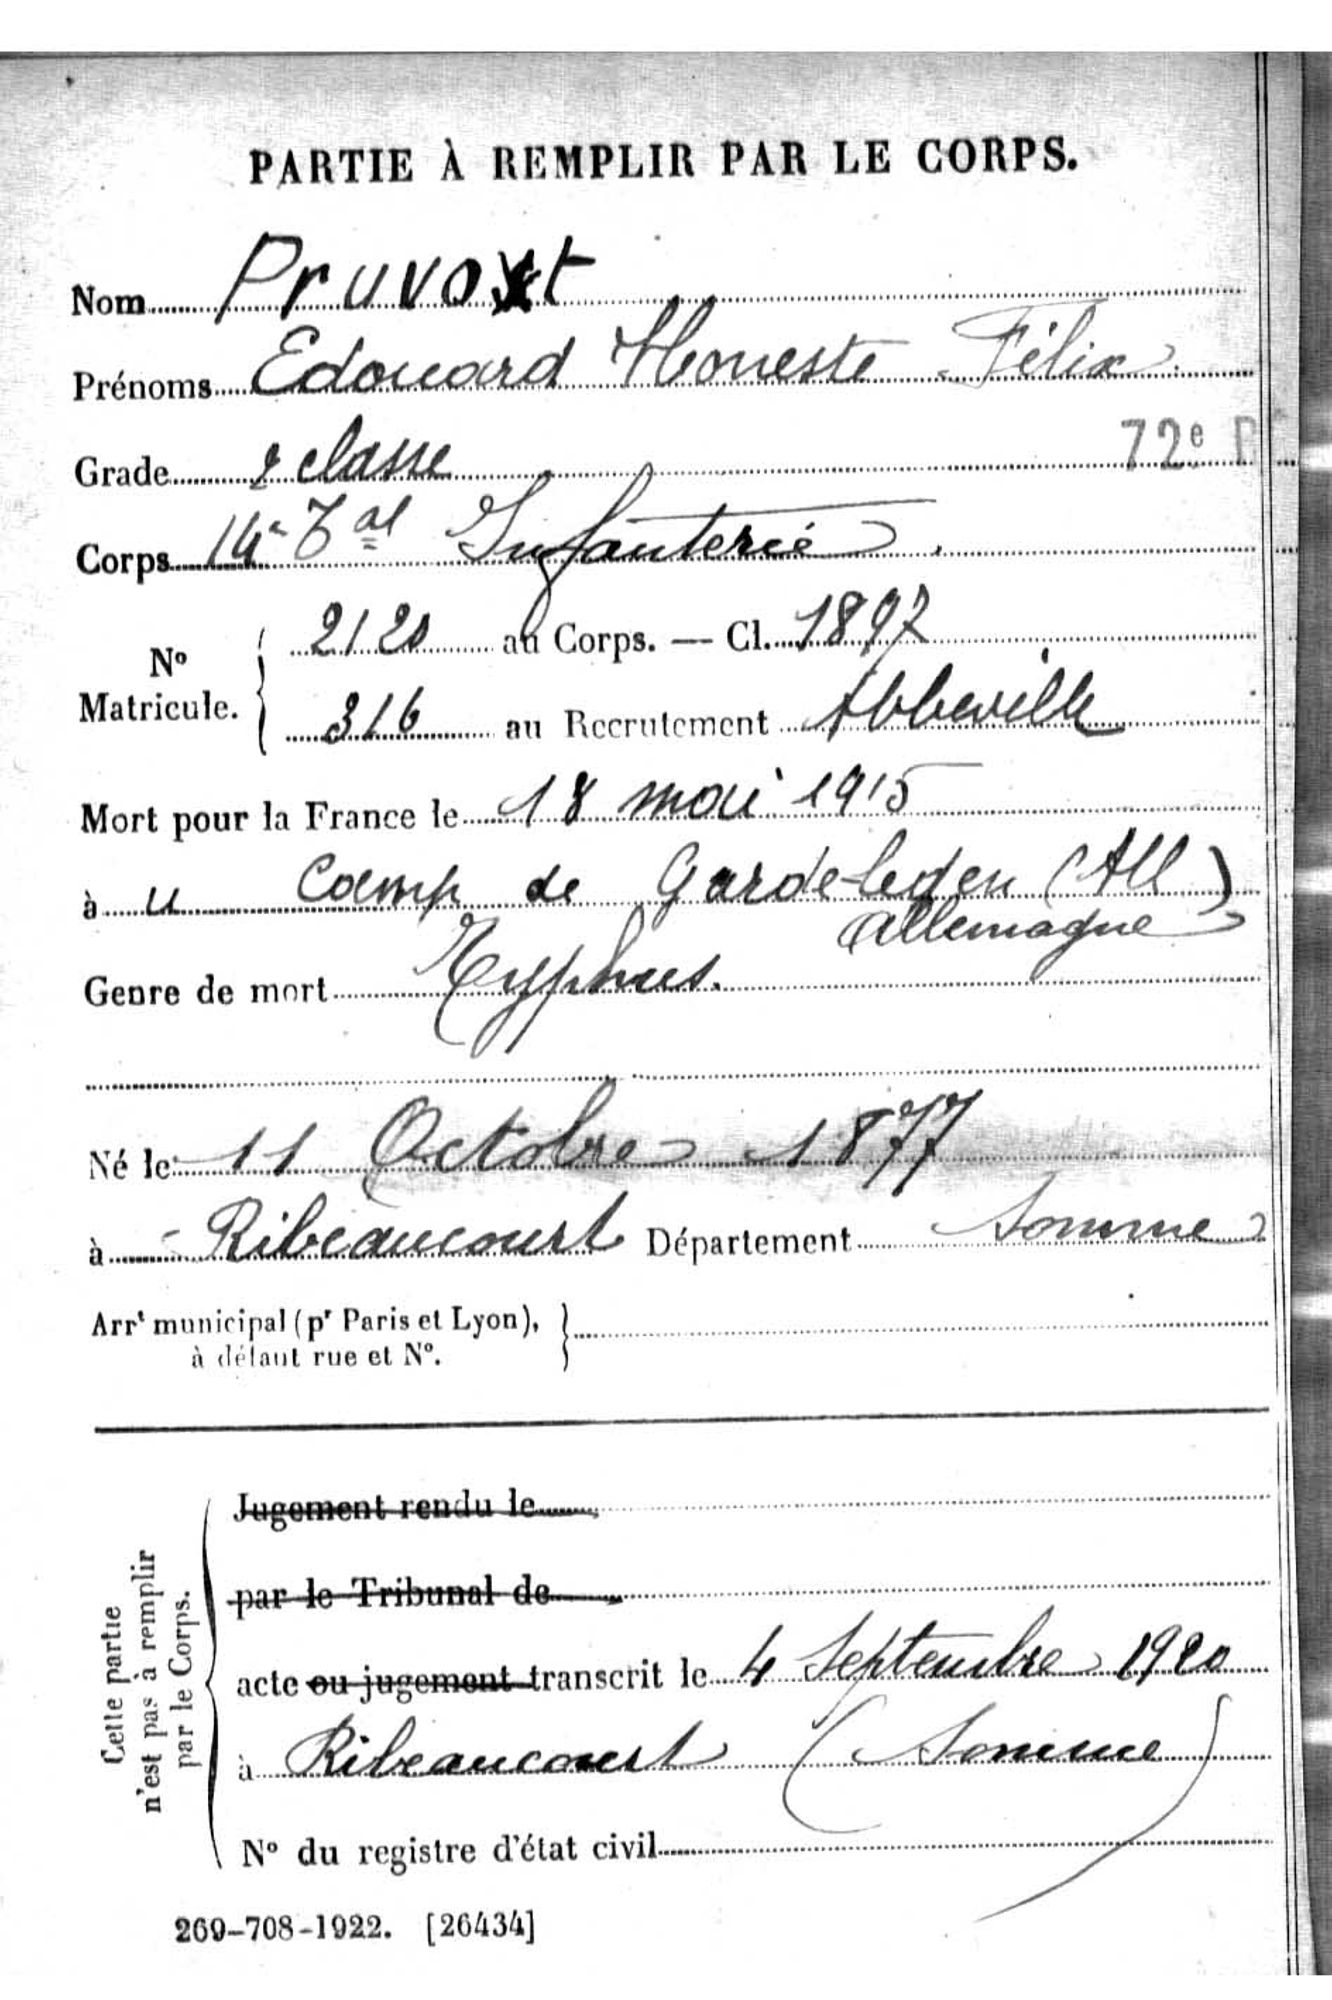 PARTIE À REMPLIR PAR LE CORPS.
Nom Pruvost
Prénoms Edouard Honeste Félix
72e
Grade 2 classe
Corps 14e Tal Infanterie
2120 au Corps. — Cl. 1897
No Matricule.
316 au Recrutement Abbeville
Mort pour la France le 18 mai 1915
à u Camp de Gardelegen (All)
allemagne
Genre de mort Typhus.
Né le 11 Octobre 1877
à Ribeaucourt Département Somme
Arrt municipal (pr Paris et Lyon),
à défaut rue et No.
Cette partie
n'est pas à remplir
par le Corps.
Jugement rendu le
par le Tribunal de
acte ou jugement transcrit le 4 Septembre 1920
à Ribeaucourt (Somme)
No du registre d'état civil
269-708-1922. [26434]